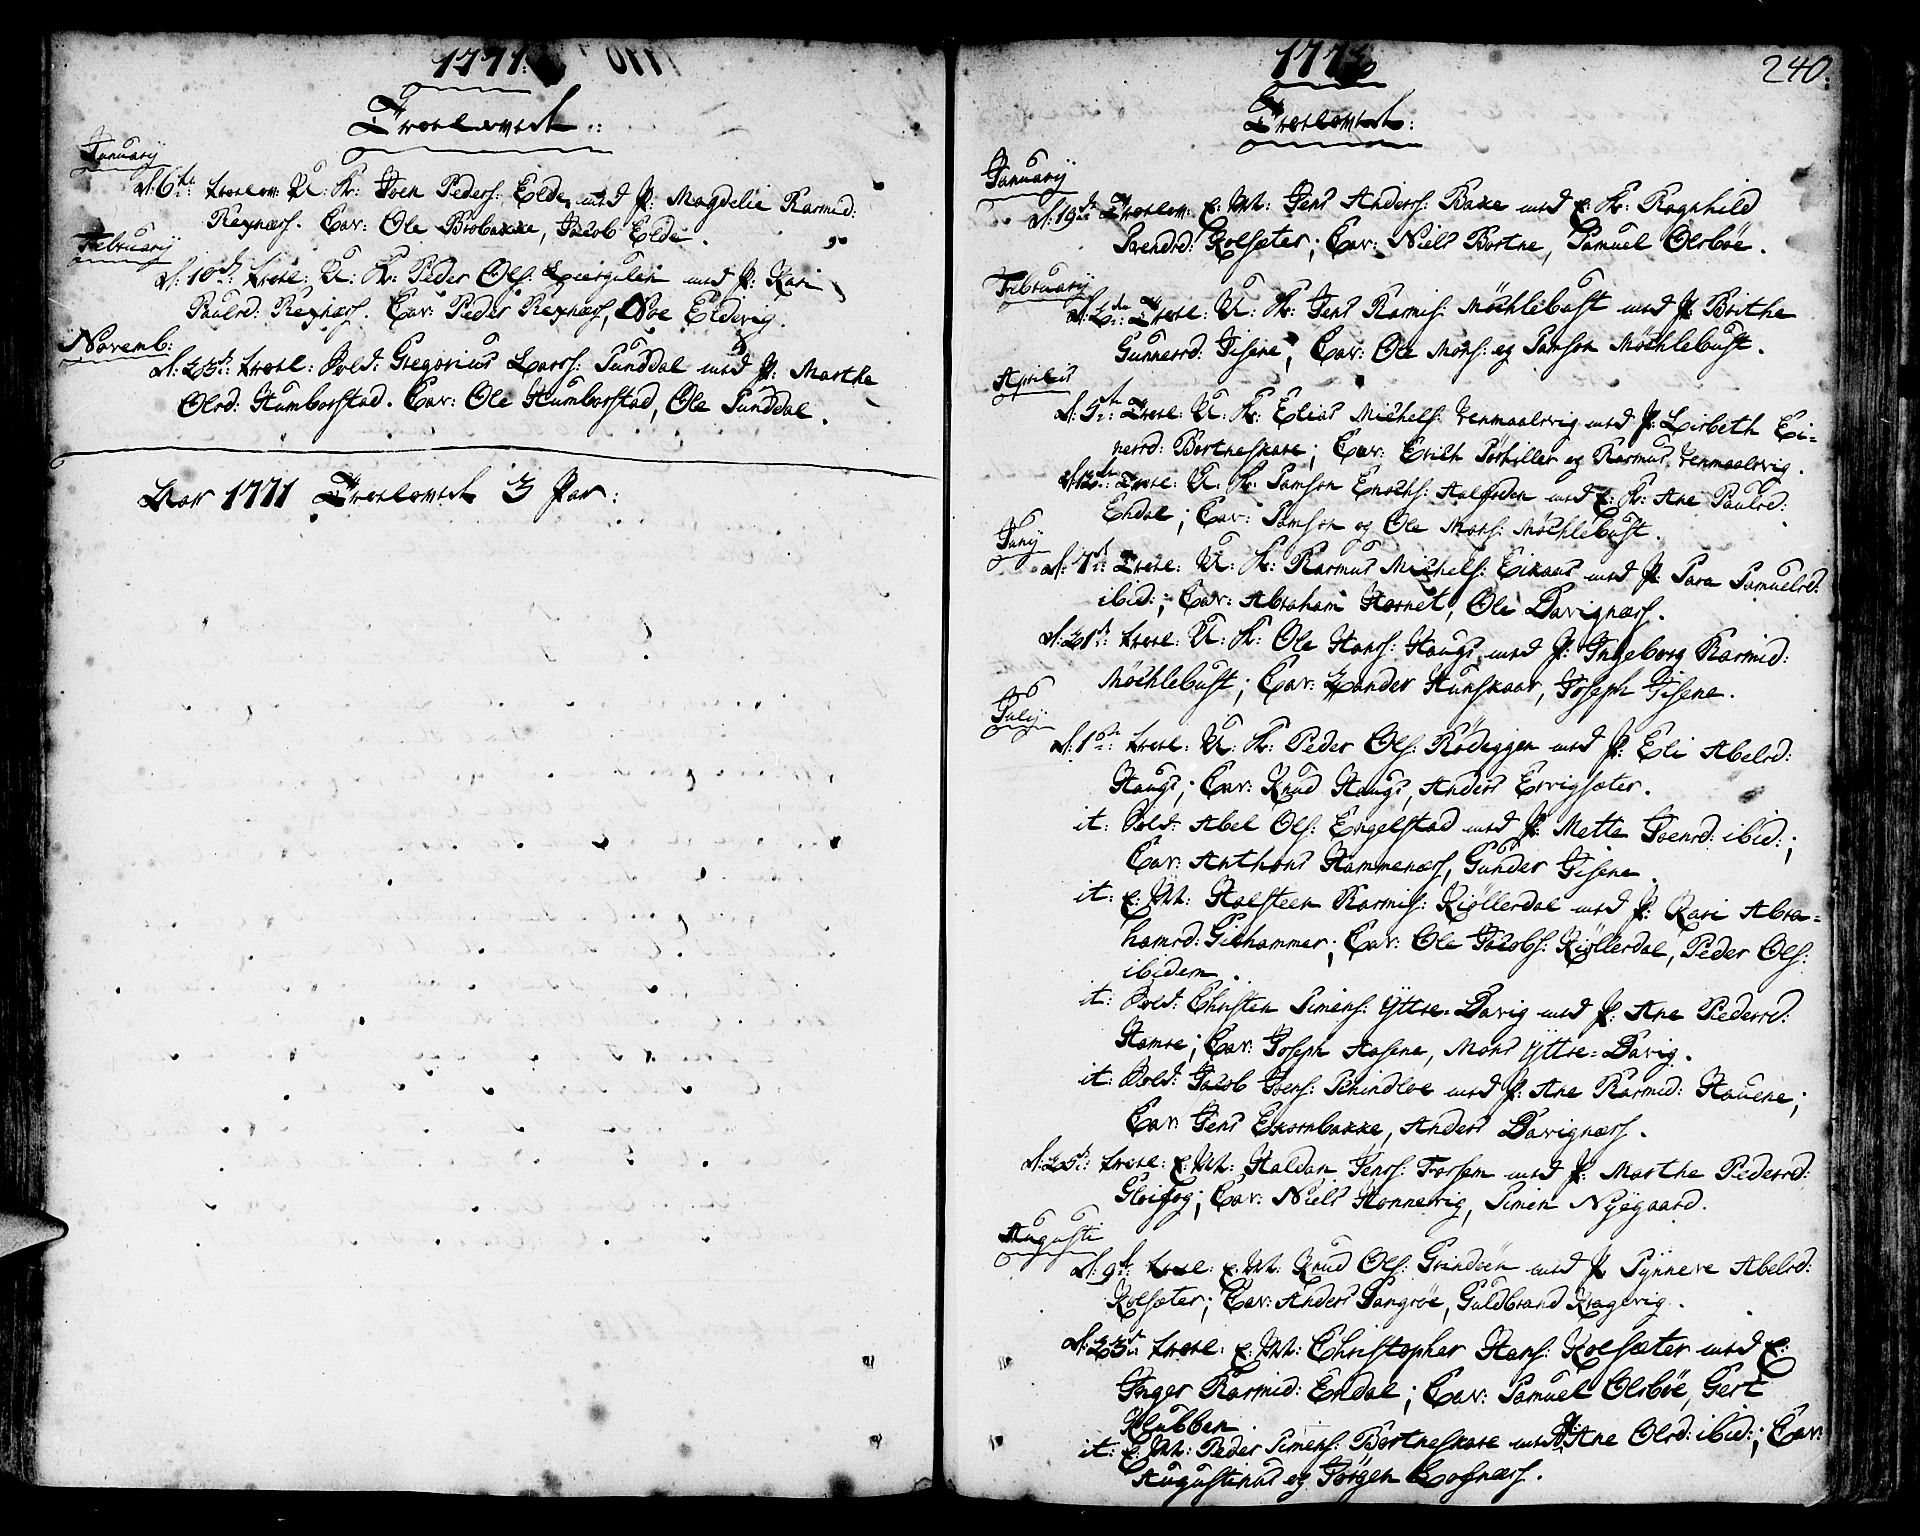 1771.
Trolovede:
January
d. 6te trolov: U: K: Joen Peders: Elde med P: Magdelie Rasmd:
Rexnæs. Cav: Ole Brobakke, Jacob Elde.
February
d: 10de: trol: U: K: Peder Ols: Leirgulen med P: Kari
Paulsd: Rexnæs. Cav: Peder Rexnæs, Noe Eldevig.
Novemb:
d: 23de: trol: Sold: Gregorius Lars: Sunddal med P: Marthe
Olsd: Humborstad. Cav: Ole Humborstad, Ole Sunddal.
Aar 1771 Trolovede 3 Par:
240.
Trolovede:
January
d: 19de Trolov: e: M: Jens Anders: Bakke med e: K: Ragnhild
Svendsd: Kolsæter; Cav: Niels Bortne, Samuel Olsböe.
February
Trol: U: K: Jens Rasmis: Möchlebust med P: Brithe
Gunnersd: Gisene; Cav: Ole Mons: og Samson Möchlebust.
Aprilis
d: 5te: Trol: U: K: Elias Michels: Venmaalsvig med P: Lisbeth Ei-
nersd: Bortneskare; Cav: Erich og Rasmus Venmaalsvig.
d: 12te: Trol: U: K: Samson Enochs: Aalfoden med e: K: Ane Paulsd:
Endal; Cav: Samson og Ole Mons: Möchlebust.
Juny
d: 7de: Trol: U: K: Rasmus Michels: Eikaas med P: Sara Samuelsd:
ibid:; Cav: Abraham Hornet, Ole Davignæs.
d: 21de: trol: U: K: Ole Hans: Haugs med P: Ingeborg Rasmid:
Möchlebust; Cav: Hunskaar, Joseph Gisene.
July
d: 1ste: trol: U: K: Peder Ols: Rödeggen med P: Eli Abelsd:
Haugs; Cav: Knud Haugs, Anders Ervigsæter.
it: Sold: Abel Ols: Engelstad med P: Mette Joensd: ibid:;
Cav: Anthoni Hammenæs, Gunder Gisene.
it: e: M: Holsteen Rasmis: Kiöllerdal med P: Kari Abra-
hamsd: Gilhammer; Cav: Ole Jacobs: Kiöllerdal, Peder Ols:
ibidem.
it: Sold: Christen Simens: Yttre-Davig med P: Ane Pedersd:
Hamre; Cav: Joseph Aasene, Mons Yttre-Davig.
it: Sold: Jacob Joens: med P: Ane Rasmid: Hauene;
Cav: Jens Ekornbakke, Anders Davignæs.
d: 25de: trol: e: M: Haldan Jens: med P: Marthe Pedersd:
Cav: Niels Hönnevig, Simen Nyegaard.
Augusti
d: 9de: trol: e: M: Knud Ols: Grindöen med P: Synneve Abelsd:
Kolsæter; Cav: Anders Guldbrand Kragevig.
d: 23de: trol: e: M: Christopher Hans: Kolsæter med e:
Inger Rasmid: Endal; Cav: Samuel Olsböe, Gert
Klubben
it: e: M: Peder Simens: Bortneskare med P: Ane Olsd: ibid:; Cav:
Augustinus og Jörgen